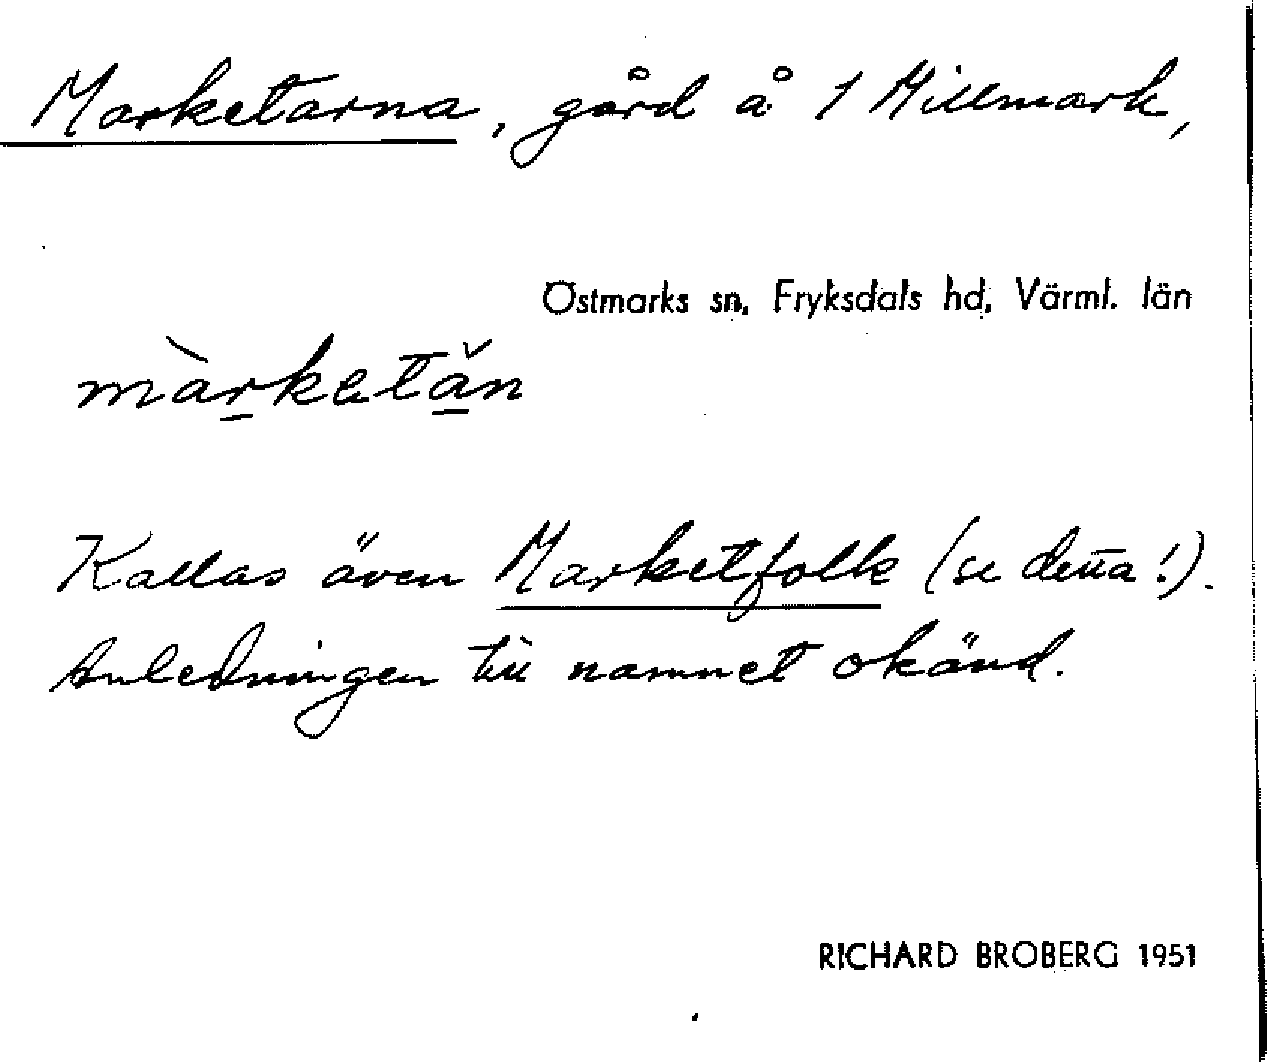 Marketarna, gård å 1 Millmark,
Östmarks sn, Fryksdals hd, Värml. län
màrketăn
Kallas även Marketfolk (se detta!).
Anledningen till namnet okänd.
RICHARD BROBERG 1951